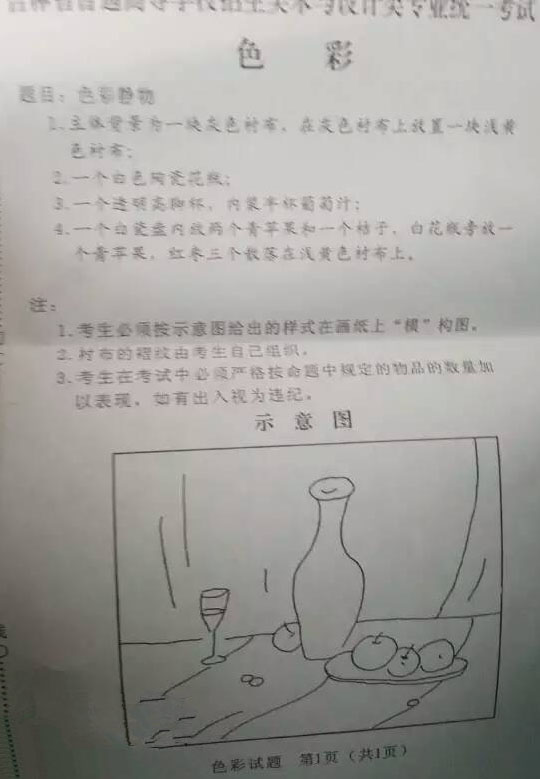 吉林省普通高等学校招生美术与设计类专业统一考试
色 彩
题目：色彩静物
1.主体背景为一块灰色衬布，在灰色衬布上放置一块浅黄
色衬布；
2.一个白色陶瓷花瓶；
3.一个透明高脚杯，内装半杯葡萄汁；
4.一个白瓷盘内放两个青苹果和一个桔子，白花瓶旁放一
个青苹果，红枣三个散落在浅黄色衬布上。
注：
1.考生必须按示意图给出的样式在画纸上“横”构图。
2.衬布的褶纹由考生自己组织。
3.考生在考试中必须严格按命题中规定的物品的数量加
以表现，如有出入视为违纪。
示 意 图
色彩试题 第1页（共1页）